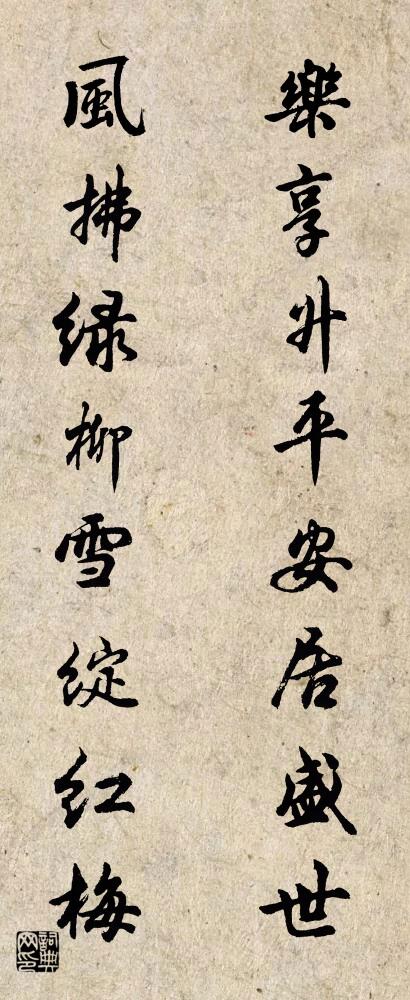 樂享升平安居盛世
風拂綠柳雪綻紅梅
詞典網印